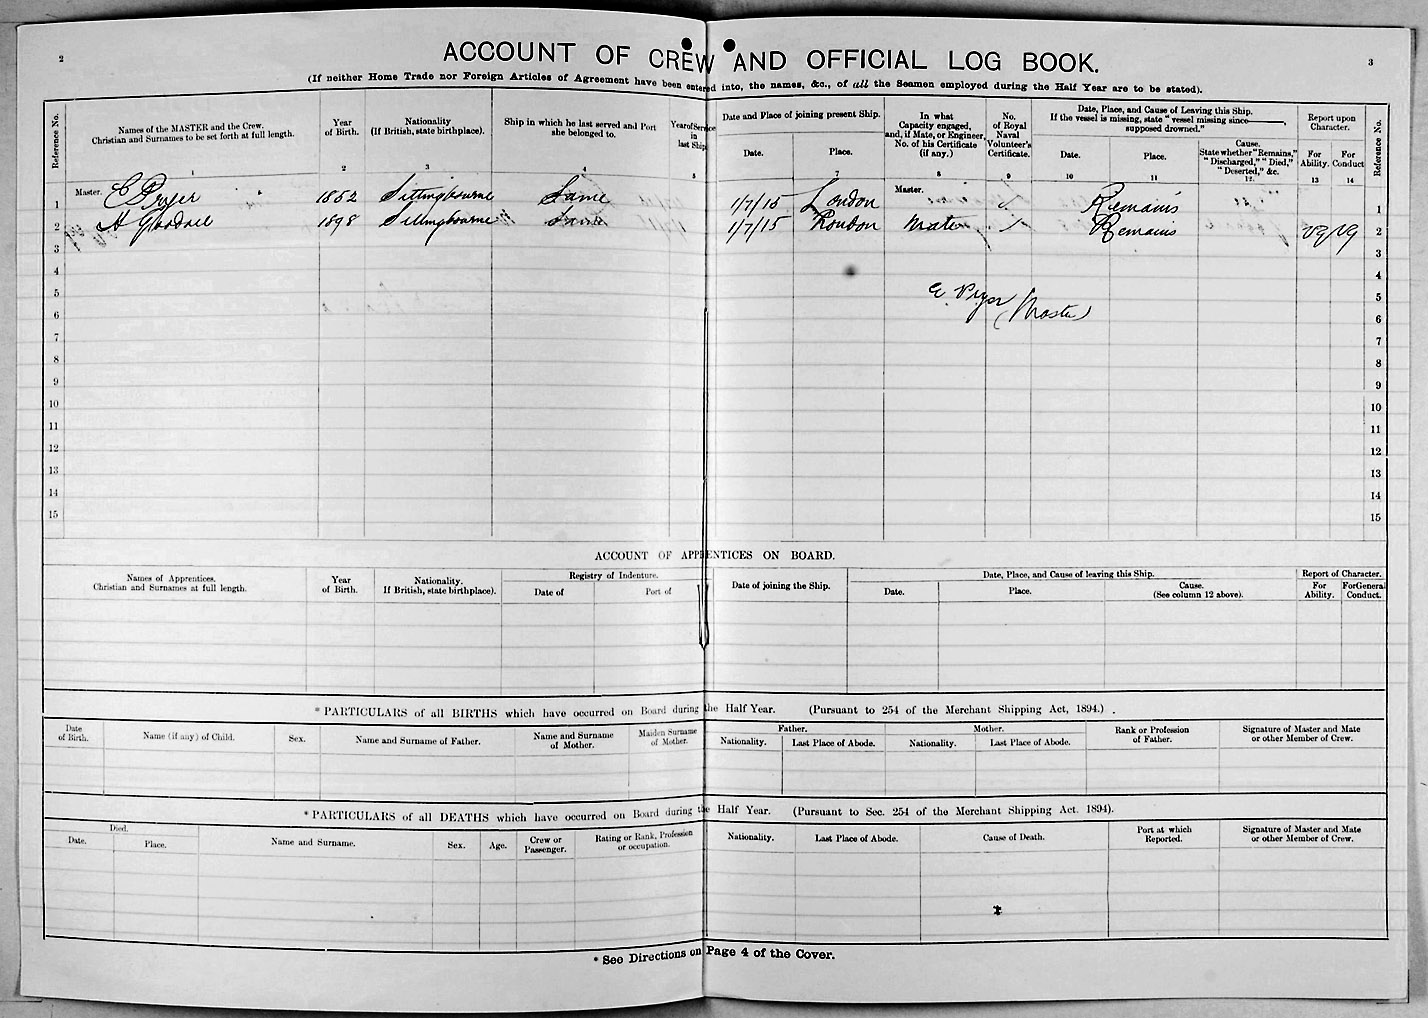 2
ACCOUNT OF CREW AND OFFICIAL LOG BOOK.
3
(If neither Home Trade nor Foreign Articles of Agreement have been entered into, the names, &c., of all the Seamen employed during the Half Year are to be stated).
Reference No.
Names of the MASTER and the Crew.
Christian and Surnames to be set forth at full length.
1
Year
of Birth.
2
Nationality
(If British, state birthplace).
3
Ship in which he last served and Port
she belonged to.
4
Year of Service
in
last Ship
5
Date and Place of joining present Ship.
Date.
Place.
7
In what
Capacity engaged,
and, if Mate, or Engineer,
No. of his Certificate
(if any.)
8
No.
of Royal
Naval
Volunteer's
Certificate.
9
Date, Place, and Cause of Leaving this Ship.
If the vessel is missing, state "vessel missing since———,
supposed drowned."
Date.
10
Place.
11
Cause.
State whether "Remains,"
"Discharged," "Died,"
"Deserted," &c.
12.
Report upon
Character.
For
Ability.
13
For
Conduct
14
Reference No.
1 Master. E Pryer 1852 Sittingbourne Same 1/7/15 London Master. Remains 1
2 A Goodall 1898 Sittingbourne Same 1/7/15 London Mate Remains VG VG 2
3 3
4 4
5 E. Pryer 5
6 (Master) 6
7 7
8 8
9 9
10 10
11 11
12 12
13 13
14 14
15 15
ACCOUNT OF APPRENTICES ON BOARD.
Names of Apprentices.
Christian and Surnames at full length.
Year
of Birth.
Nationality.
If British, state birthplace).
Registry of Indenture.
Date of
Port of
Date of joining the Ship.
Date, Place, and Cause of leaving this Ship.
Date.
Place.
Cause.
(See column 12 above).
Report of Character.
For
Ability.
For General
Conduct.
* PARTICULARS of all BIRTHS which have occurred on Board during the Half Year. (Pursuant to 254 of the Merchant Shipping Act, 1894.) .
Date
of Birth.
Name (if any) of Child.
Sex.
Name and Surname of Father.
Name and Surname
of Mother.
Maiden Surname
of Mother.
Father.
Nationality.
Last Place of Abode.
Mother.
Nationality.
Last Place of Abode.
Rank or Profession
of Father.
Signature of Master and Mate
or other Member of Crew.
* PARTICULARS of all DEATHS which have occurred on Board during the Half Year. (Pursuant to Sec. 254 of the Merchant Shipping Act. 1894).
Died.
Date.
Place.
Name and Surname.
Sex.
Age.
Crew or
Passenger.
Rating or Rank, Profession
or occupation.
Nationality.
Last Place of Abode.
Cause of Death.
Port at which
Reported.
Signature of Master and Mate
or other Member of Crew.
* See Directions on Page 4 of the Cover.